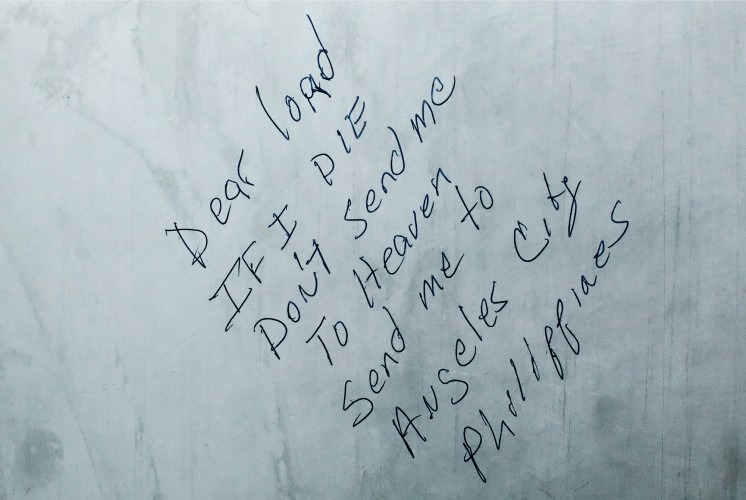 Dear load
IF I DIE
DON'T Send me
To Heaven
Send me to
ANGeles City
Philippines